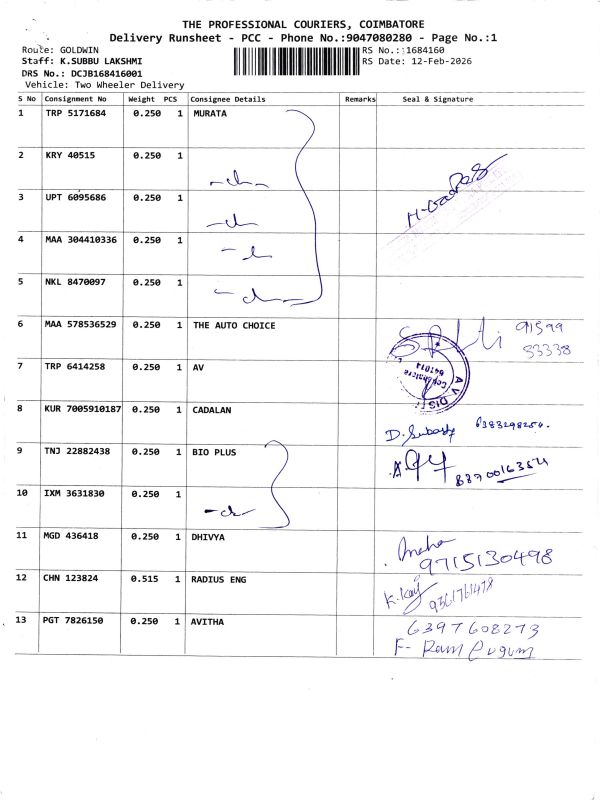 THE PROFESSIONAL COURIERS, COIMBATORE
Delivery Runsheet - PCC - Phone No.:9047080280 - Page No.:1
Route: GOLDWIN RS No.:1684160
Staff: K.SUBBU LAKSHMI RS Date: 12-Feb-2026
DRS No.: DCJB168416001
Vehicle: Two Wheeler Delivery
S No Consignment No Weight PCS Consignee Details Remarks Seal & Signature
1 TRP 5171684 0.250 1 MURATA
2 KRY 40515 0.250 1 -do-
3 UPT 6095686 0.250 1 -do-
4 MAA 304410336 0.250 1 -do-
5 NKL 8470097 0.250 1 -do-
6 MAA 578536529 0.250 1 THE AUTO CHOICE 91599
83338
7 TRP 6414258 0.250 1 AV
Coimbatore
641014
A.V. DIS
8 KUR 7005910187 0.250 1 CADALAN D. Subash 6383298254.
9 TNJ 22882438 0.250 1 BIO PLUS
10 IXM 3631830 0.250 1 -do-
11 MGD 436418 0.250 1 DHIVYA
9715130498
12 CHN 123824 0.515 1 RADIUS ENG K. Kaij 9361761478
13 PGT 7826150 0.250 1 AVITHA 6397608273